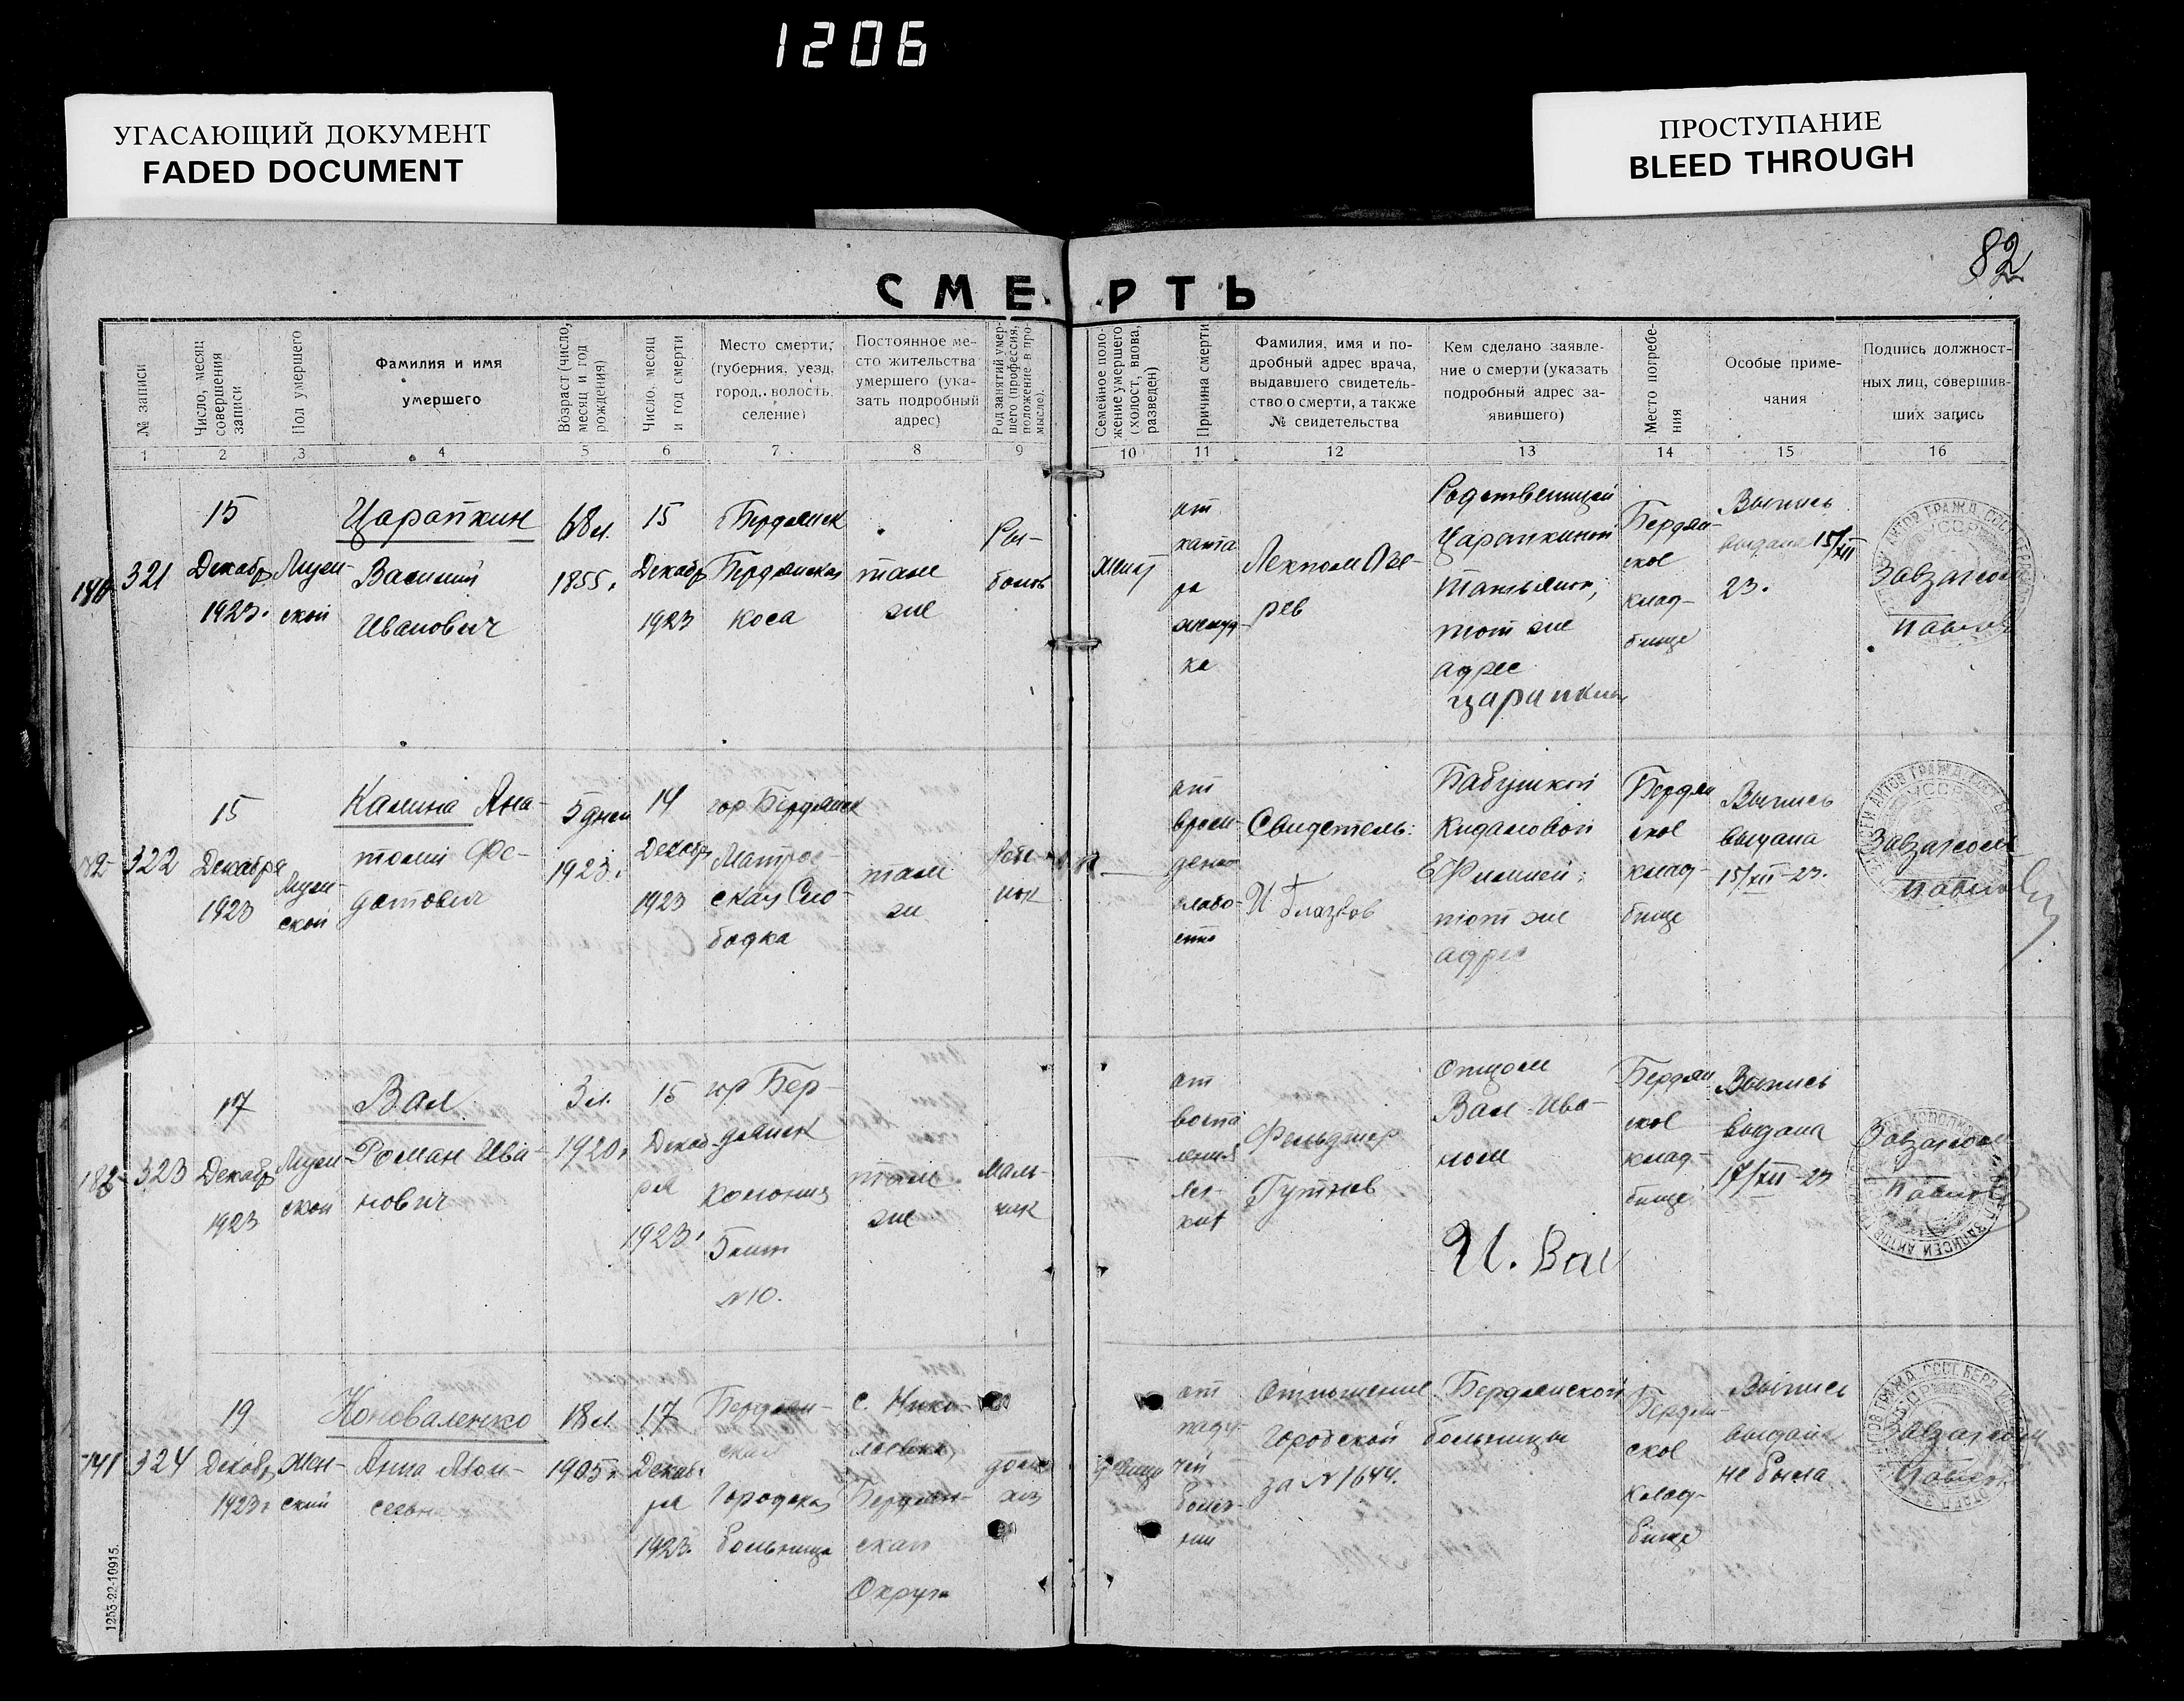 1206
УГАСАЮЩИЙ ДОКУМЕНТ
FADED DOCUMENT
ПРОСТУПАНИЕ
BLEED THROUGH
82
СМЕРТЬ
№ записи
Число, месяц
совершения
записи
Пол умершего
Фамилия и имя
умершего
Возраст (число,
месяц и год
рождения)
Число, месяц
и год смерти
Место смерти,
(губерния, уезд,
город, волость,
селение)
Постоянное ме-
сто жительства
умершего (ука-
зать подробный
адрес)
Род занятий умер-
шего (профессия,
положение в про-
мысле).
Семейное поло-
жение умершего
(холост, вдова,
разведен)
Причина смерти
Фамилия, имя и по-
дробный адрес врача,
выдавшего свидетель-
ство о смерти, а также
№ свидетельства
Кем сделано заявле-
ние о смерти (указать
подробный адрес за-
явившего)
Место погребе-
ния
Особые приме-
чания
Подпись должност-
ных лиц, совершив-
ших запись
1 2 3 4 5 6 7 8 9 10 11 12 13 14 15 16
321
15
Декабр
1923.
Мужс-
ской
Царапкин
Василий
Иванович
68 л.
1855.
15
Декабр
1923
Бердянск
Бердянская
коса
там
же
Ры-
болов
женат
от
ката
ра
желуд-
ка
Лекпом
Родственицей
Царапкиной
Татьяной,
тот же
адрес
Царапкин
Бердян-
ское
клад-
бище
Выпись
выдана 15/XII
23.
Завзагсом
322
15
Декабря
1923
Мужс-
ской
Калина Ана-
толий Фе-
дотович
5 дней
1923.
14
Декабр
1923
гор. Бердянск
Матрос-
ская Сло-
бодка
там
же
Ребе-
нок
от
врож-
ден
слабо-
сти
Свидетель:
И. Глазков
Бабушкой
Кидаловой
тот же
адрес
Бердян
ское
клад-
бище
Выпись
выдана
15/XII-23.
Завзагсом
323
17
Декабр
1923
Мужс-
ской
Вал
Роман Ива-
нович
3 л.
1920.
15
Декаб-
ря
1923.
гор Бер-
дянск
Колония
5 лит
№10.
там
же
Маль-
чик
от
воспа
ления
лег-
ких
Фельдшер
Гутнев
Отцом
Вал Ива-
ном
И. Вал
Бердян
ское
клад-
бище
Выпись
выдана
17/XII-23
Завзагсом
324
19
Декабр
1923г
Жен-
ский
Коноваленко
Анна
18 л.
1905г
17
Декаб-
ря
1923.
Бердян-
ская
Городская
больница
с. Нико-
лаевка,
Бердян-
скаго
Округа
девица
от
паду-
чей
болез-
ни
Отношение Бердянской
Городской больницы
за №1644.
Бердян-
ское
клад-
бище
Выпись
выдана
не была
Завзагсом
1253-22-10915.